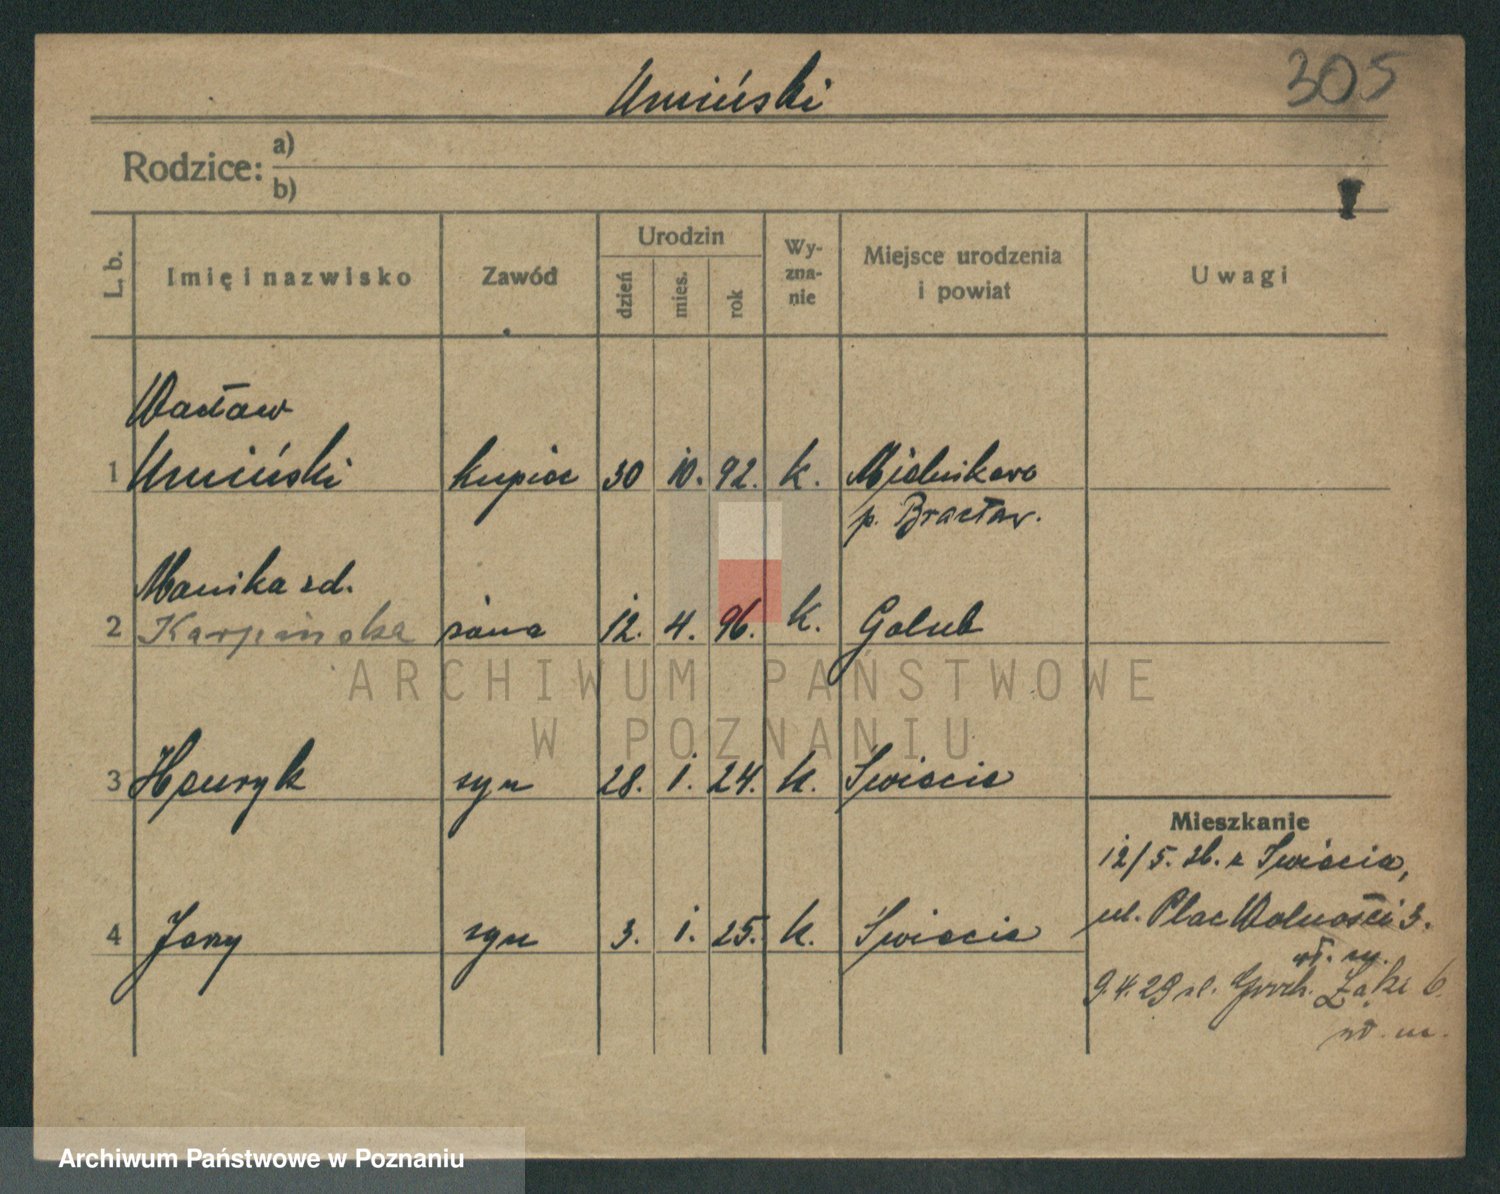 305
Umiński
Rodzice: a)
b)
L. b.
Imię i nazwisko
Zawód
Urodzin
dzień
mies.
rok
Wy-
zna-
nie
Miejsce urodzenia
i powiat
Uwagi
Wacław
1 Umiński kupiec 30 10. 92. k. Mielnikowo
p. Bracław.
Monika zd.
2 Karpińska żona 12. 4. 96. k. Golub
3 Henryk syn 28. 1. 24. k. Świecie
Mieszkanie
12/5. 26. z Świecia,
4 Jerzy syn 3. 1. 25. k. Świecie
ul. Plac Wolności 3.
wł. m.
9.4.29 ul. Groch. Łąki 6.
wł. m.
ARCHIWUM PAŃSTWOWE
W POZNANIU
Archiwum Państwowe w Poznaniu